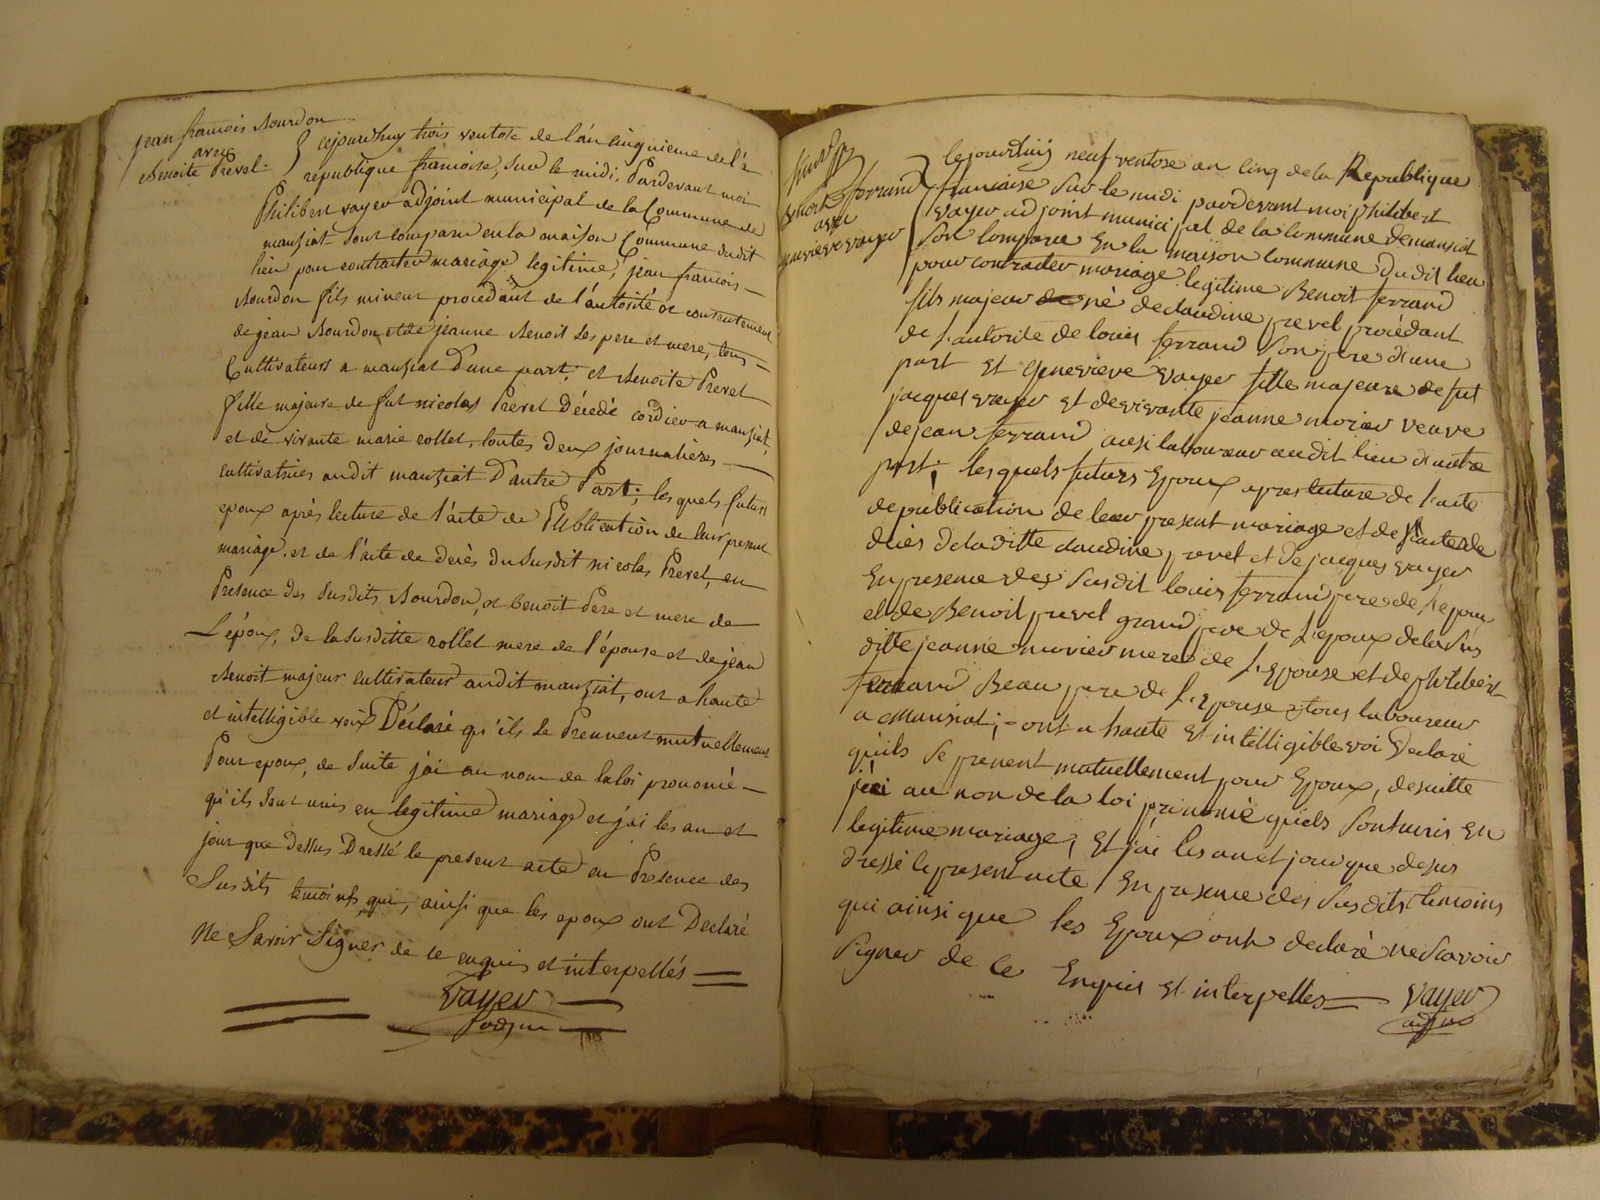 jean francois Bourdon
avec
Benoite Prevel
Cejourdhuy trois ventose de l'an cinquieme de la
republique francoise, sur le midi, Pardevant moi
Philibert vayer adjoint municipal de la Commune de
manziat sont comparu en la maison Commune dudit
lieu pour contracter mariage legitime, jean francois
Bourdon fils mineur procedant de l'autorité et consentement
de jean Bourdon et de jeanne Benoit ses pere et mere, tous
Cultivateurs a manziat d'une part, et Benoite Prevel
fille majeure de fut nicolas Prevel Décédé cordier a manziat
et de vivante marie rollet, toutes deux journalières
cultivatrices audit manziat D'autre Part; les quels futurs
epoux après lecture de l'acte de Publication de leur present
mariage, et de l'acte de decès du susdit nicolas Prevel, en
Presence des susdits Bourdon, et benoit Pere et mere de
L'époux, de la susditte rollet mere de l'épouse et de jean
Benoit majeur cultivateur audit manziat, ont a haute
et intelligible voix Déclaré qu'ils se Prennent mutuellement
Pour epoux, de suite j'ai au nom de la loi prononcé
qu'ils sont unis en legitime mariage et j'ai les an et
jour que dessus Dressé le present acte en Presence des
Susdits temoins qui, ainsi que les epoux ont Declaré
Ne Savoir Signer de ce enquis et interpellés
Vayer
adjoint
Benoit ferrand
avec
genevieve vayer
Cejourdhuy neuf ventose an cinq de la Republique
francaise sur le midi pardevant moi philibert
vayer adjoint municipal de la commune de mansiat
son comparu En la maison commune dudit lieu
pour contracter mariage legitime Benoit ferrand
fils majeur né de claudine prevel procédant
de l'autorité de louis ferrand son pere d'une
part et Genevieve vayer fille majeure de fut
jacques vayer et de vivante jeanne morier veuve
de jean ferrand aussi laboureur audit lieu d'autre
part; lesquels futurs Epoux apres lecture de l'acte
de publication de leur present mariage et de l'acte de
décès de laditte claudine prevel et de jacques vayer
En presence des susdit louis ferrand pere de l'epoux
et de Benoit prevel grand pere de L'epoux de la sus
ditte jeanne morier mere de L'Epouse et de philibert
ferrand Beau pere de L'Epouse tous laboureur
a Mansiat; ont a haute et intelligible voi Declaré
quils se prenent mutuellement pour Epoux, de suitte
j'ai au non de la loi prononcé quiels sont unis en
legitime mariage, et j'ai les an et jour que desus
dressé le present acte En presence des susdits temoins
qui ainsi que les Epoux ont declaré ne scavoir
signer de ce Enquis et interpelles
Vayer
adjoint